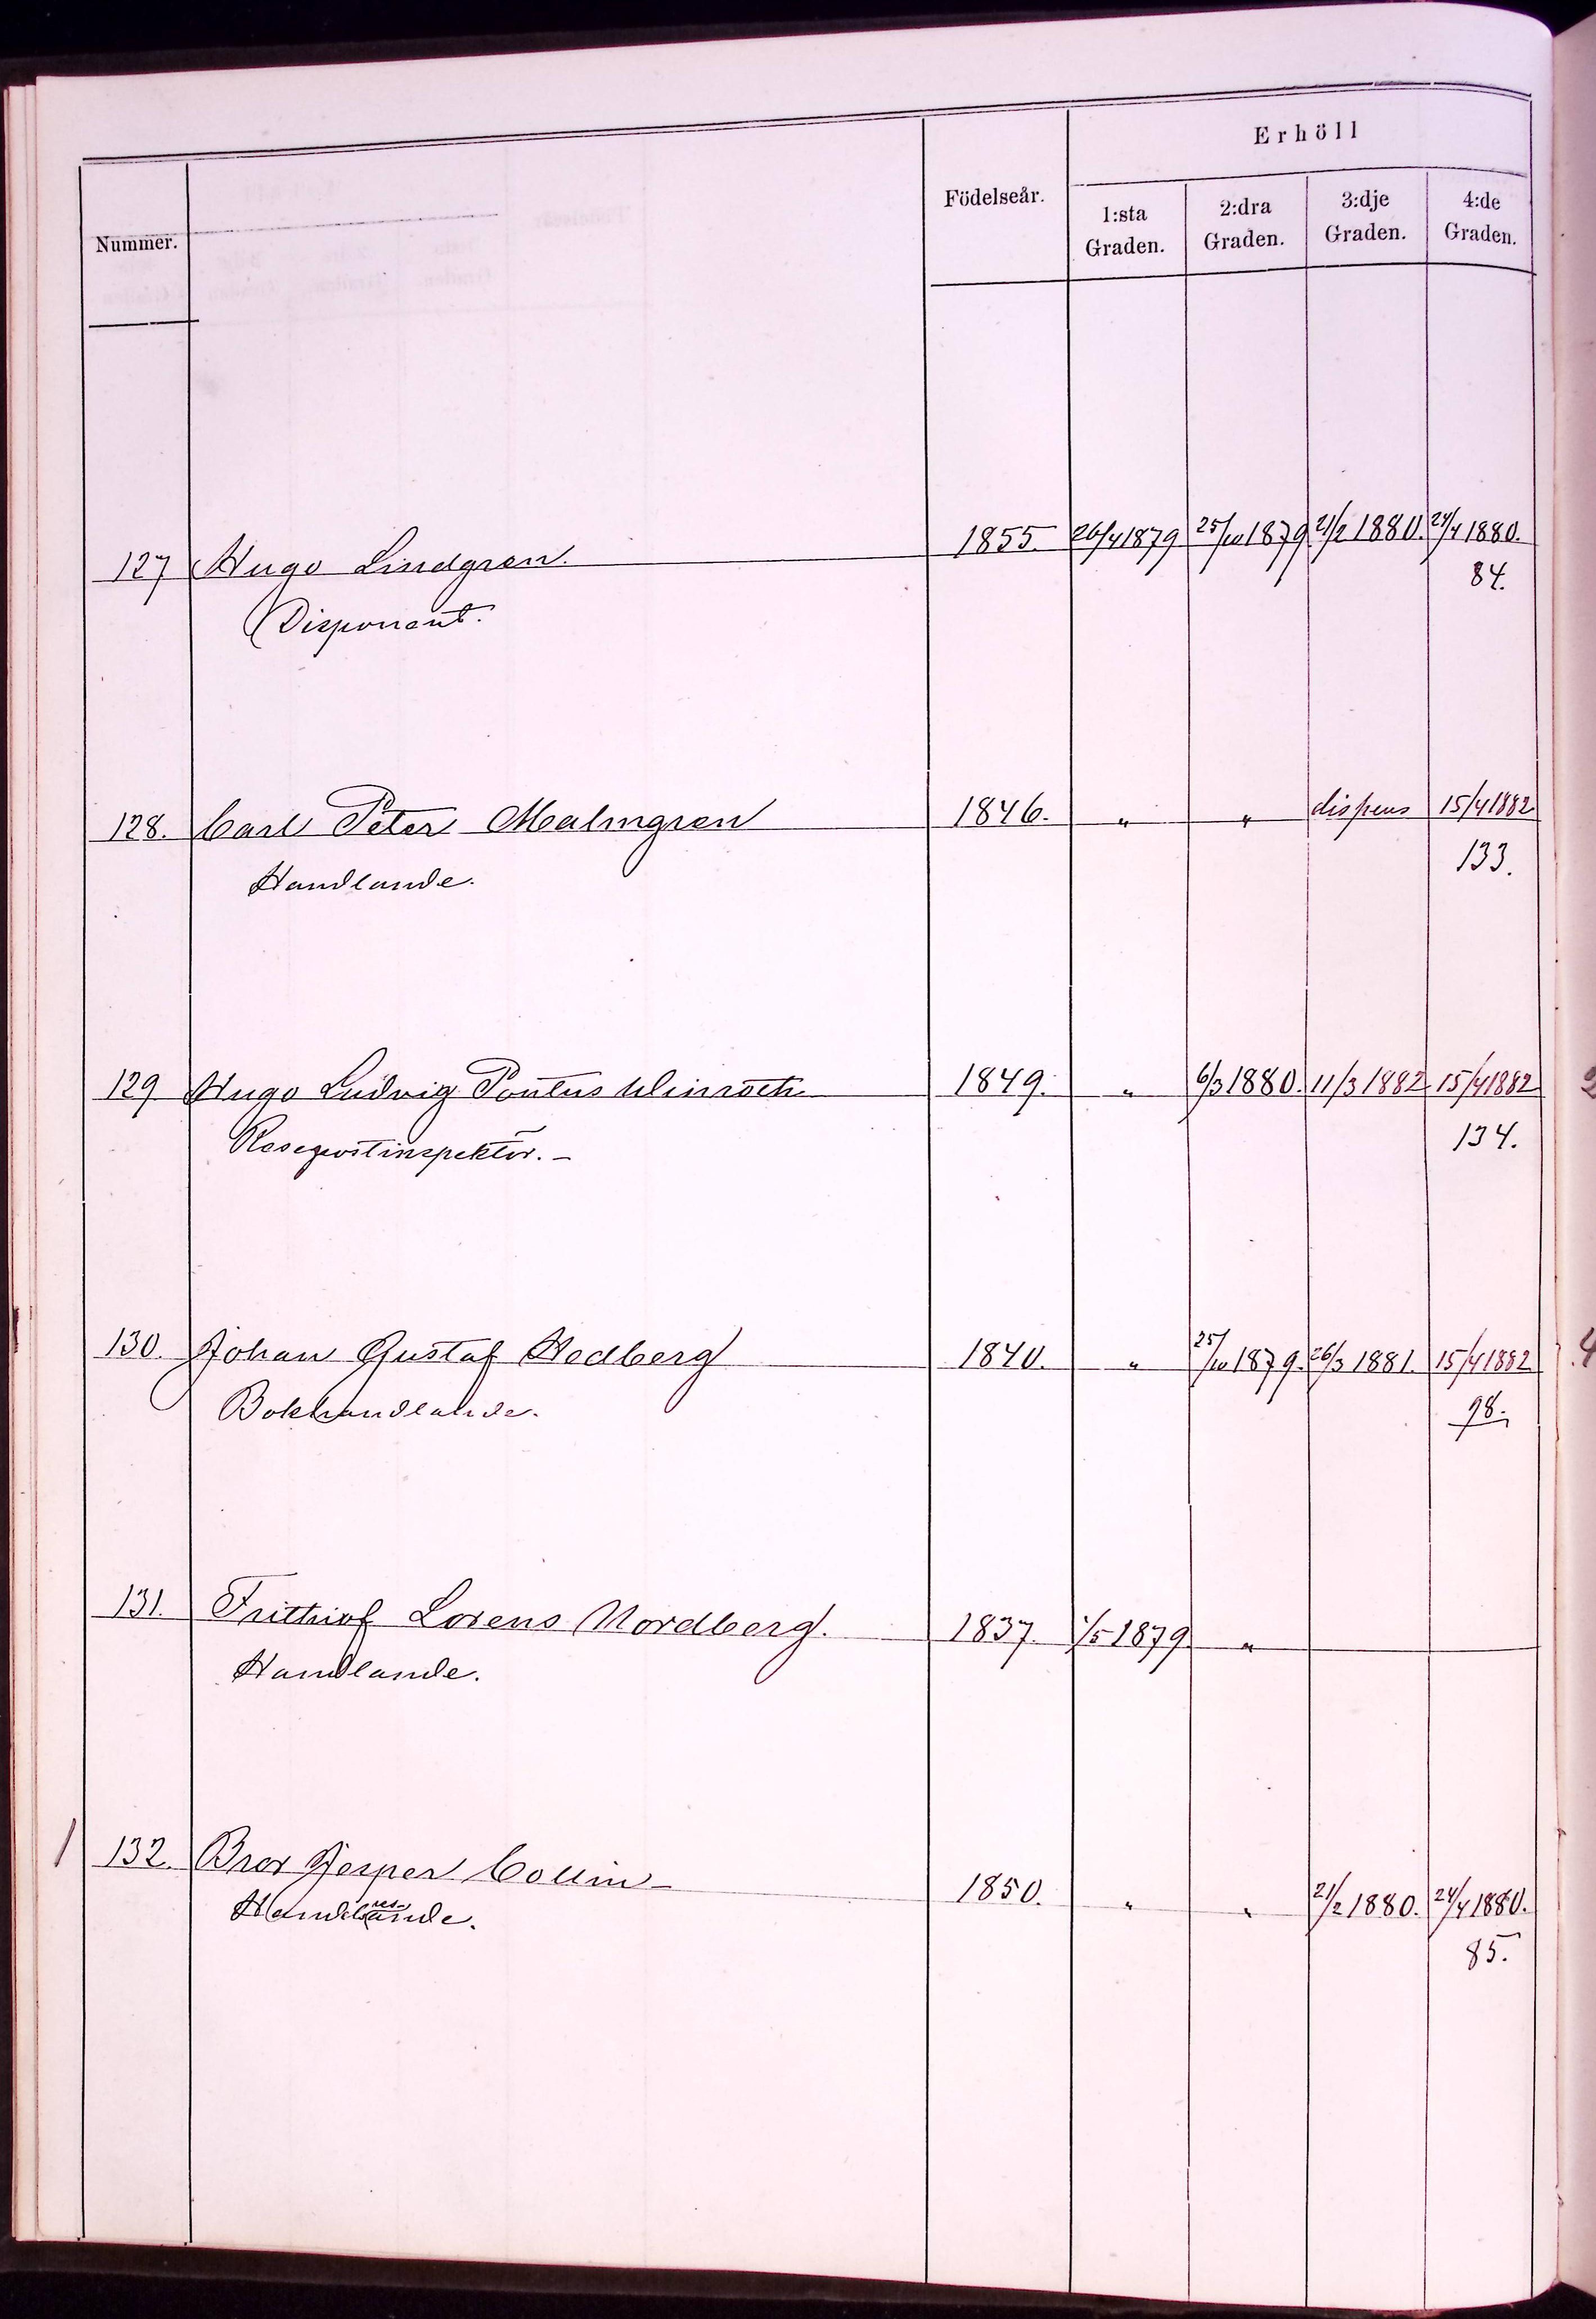 Erhöll
Nummer. Födelseår. 1:sta Graden. 2:dra Graden. 3:dje Graden. 4:de Graden.
127 Hugo Lindgren. 1855. 26/4 1879 25/10 1879. 21/2 1880. 24/4 1880.
Disponent. 84.
128. Carl Peter Malmgren 1846. " " dispens 15/4 1882
Handlande. 133.
129 Hugo Ludvig Pontus Winroth 1849. " 6/3 1880. 11/3 1882 15/4 1882
Resepostinspektör. – 134.
130. Johan Gustaf Hedberg 1840. " 25/10 1879. 26/3 1881. 15/4 1882
Bokhandlande. 98.
131. Frithiof Lorens Nordberg. 1837. 1/5 1879 "
Handlande.
1 132. Bror Jesper Collin 1850. " " 21/2 1880. 24/4 1880.
Handlande. 85.